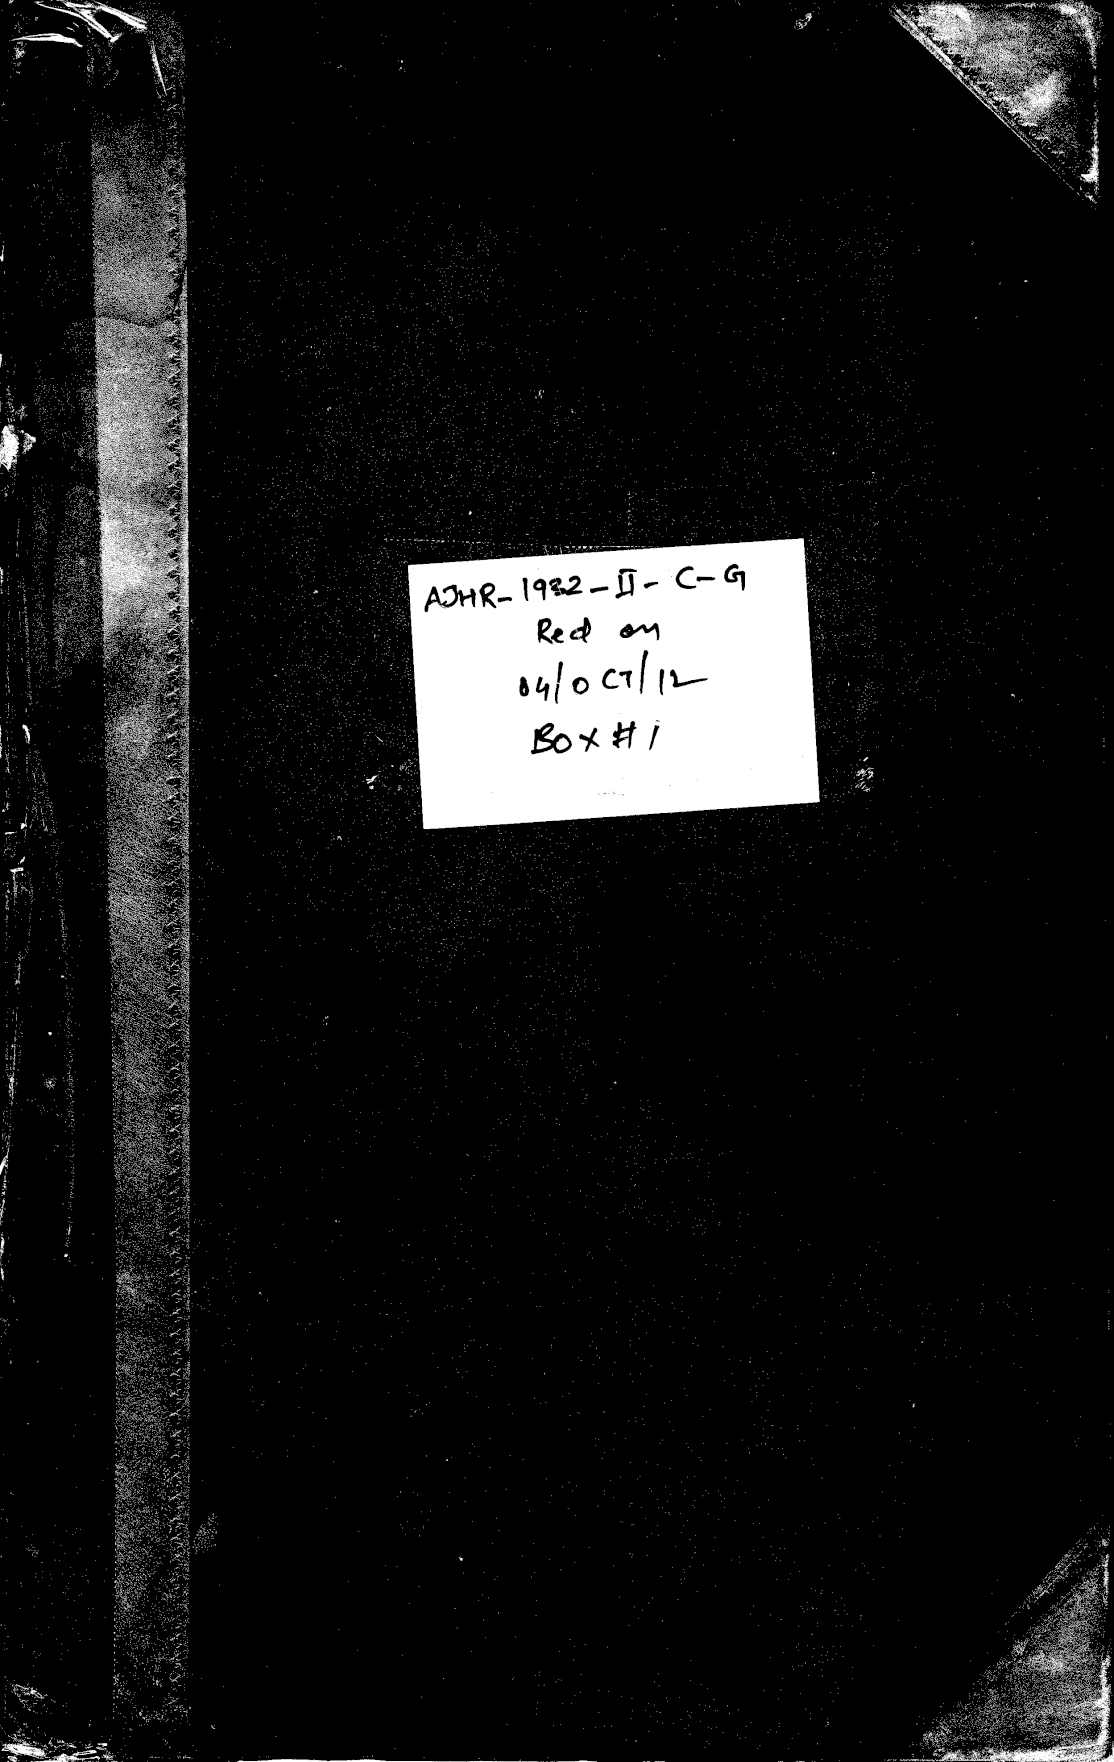 AJHR-1932-II-C-G
Recd on
04/OCT/12
Box #1